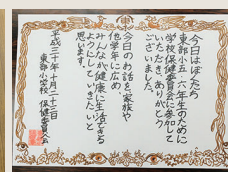 今日はぼくたち
東部小五・六年生のために
学校保健委員会に参加して
いただき、ありがとう
ございました。
今日のお話を、家族や
他学年に広め、
みんなが、健康に生活できる
ようにしていきたいと
思います。
平成三十年十月二十二日
東部小学校 保健委員会